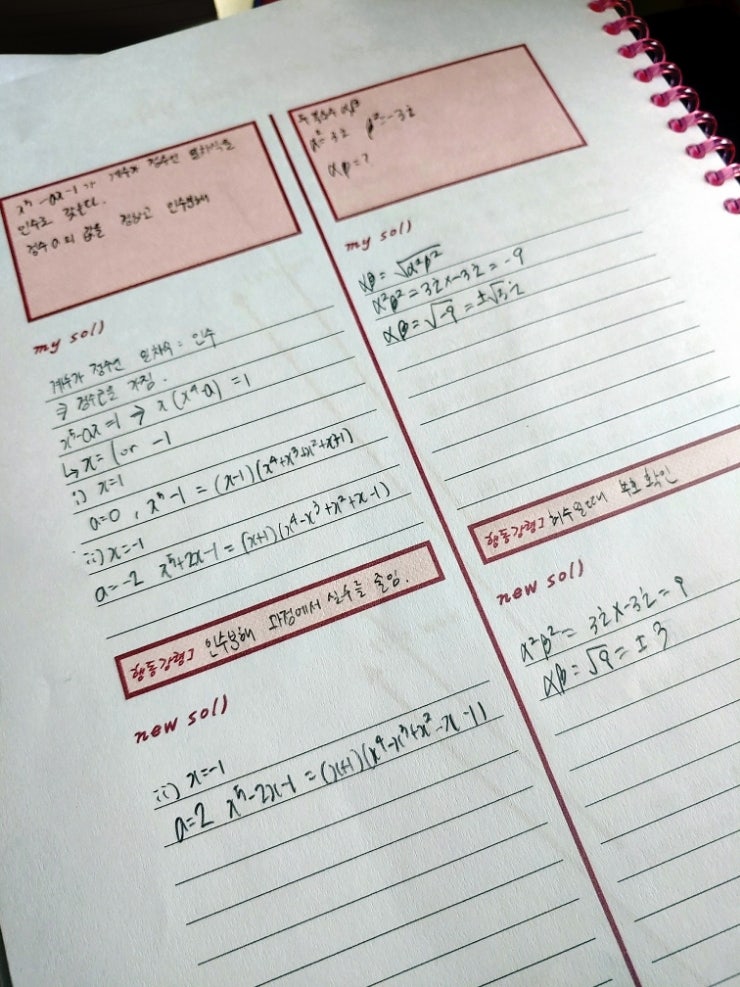 x⁵-ax-1가 계수가 정수인 일차식을
인수로 갖는다.
정수 a의 값을 구하고 인수분해
my sol)
계수가 정수인 일차식 : 인수
⇒ 정수근을 가짐.
x⁵-ax=1 → x(x⁴-a)=1
↳ x=1 or -1
i) x=1
a=0, x⁵-1=(x-1)(x⁴+x³+x²+x+1)
ii) x=-1
a=-2 x⁵+2x-1=(x+1)(x⁴-x³+x²+x-1)
행동강령] 인수분해 과정에서 실수를 줄임.
new sol)
ii) x=-1
a=2 x⁵-2x-1=(x+1)(x⁴-x³+x²-x-1)
두 복소수 αβ
α²=3i β²=-3i
αβ=?
my sol)
αβ=√α²β²
α²β²=3i×-3i=-9
αβ=√-9=±√3i
행동강령] 허수일때 부호 확인
new sol)
α²β²=3i×-3i=9
αβ=√9=±3